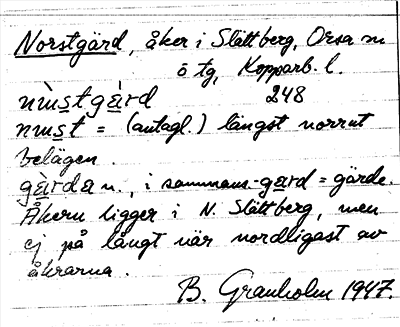 Norstgärd, åker i Slättberg, Orsa sn
ö tg, Kopparb. l.
nùstgàrd 248
nust = (antagl.) längst norrut
belägen.
gàrda n., i sammans.-gard = gärde.
Åkern ligger i N. Slättberg, men
ej på långt när nordligast av
åkrarna.
B. Granholm 1947.